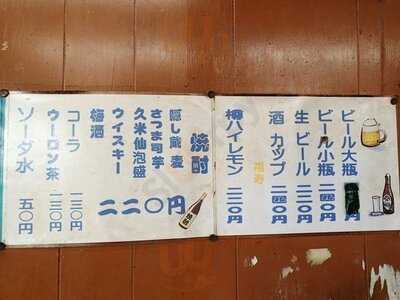 ビール大瓶
ビール小瓶 二四〇
生ビール 二二〇
酒カップ 二四〇
福寿
樽ハイレモン 二二〇円
焼酎
隠し蔵 麦
さつま司 芋
久米仙 泡盛
ウイスキー
梅酒
二二〇円
コーラ 一三〇
ウーロン茶 一三〇円
ソーダ水 五〇円